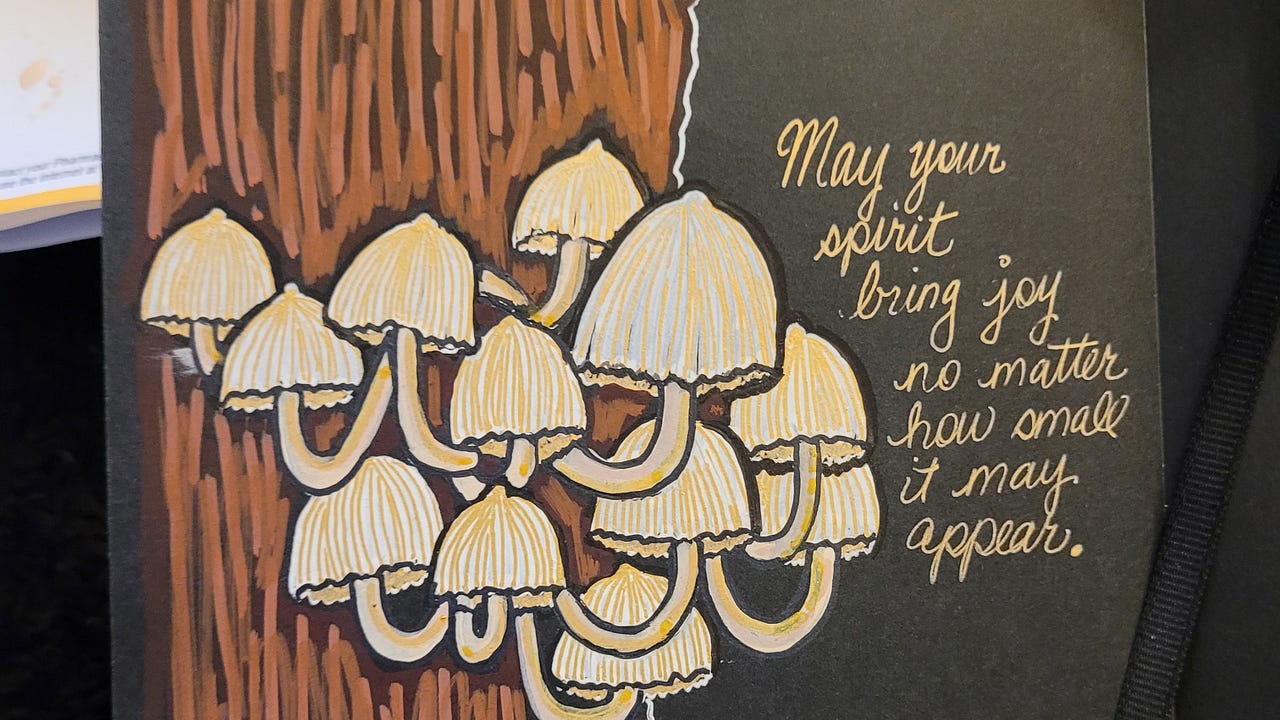 May your
spirit
bring joy
no matter
how small
it may
appear.